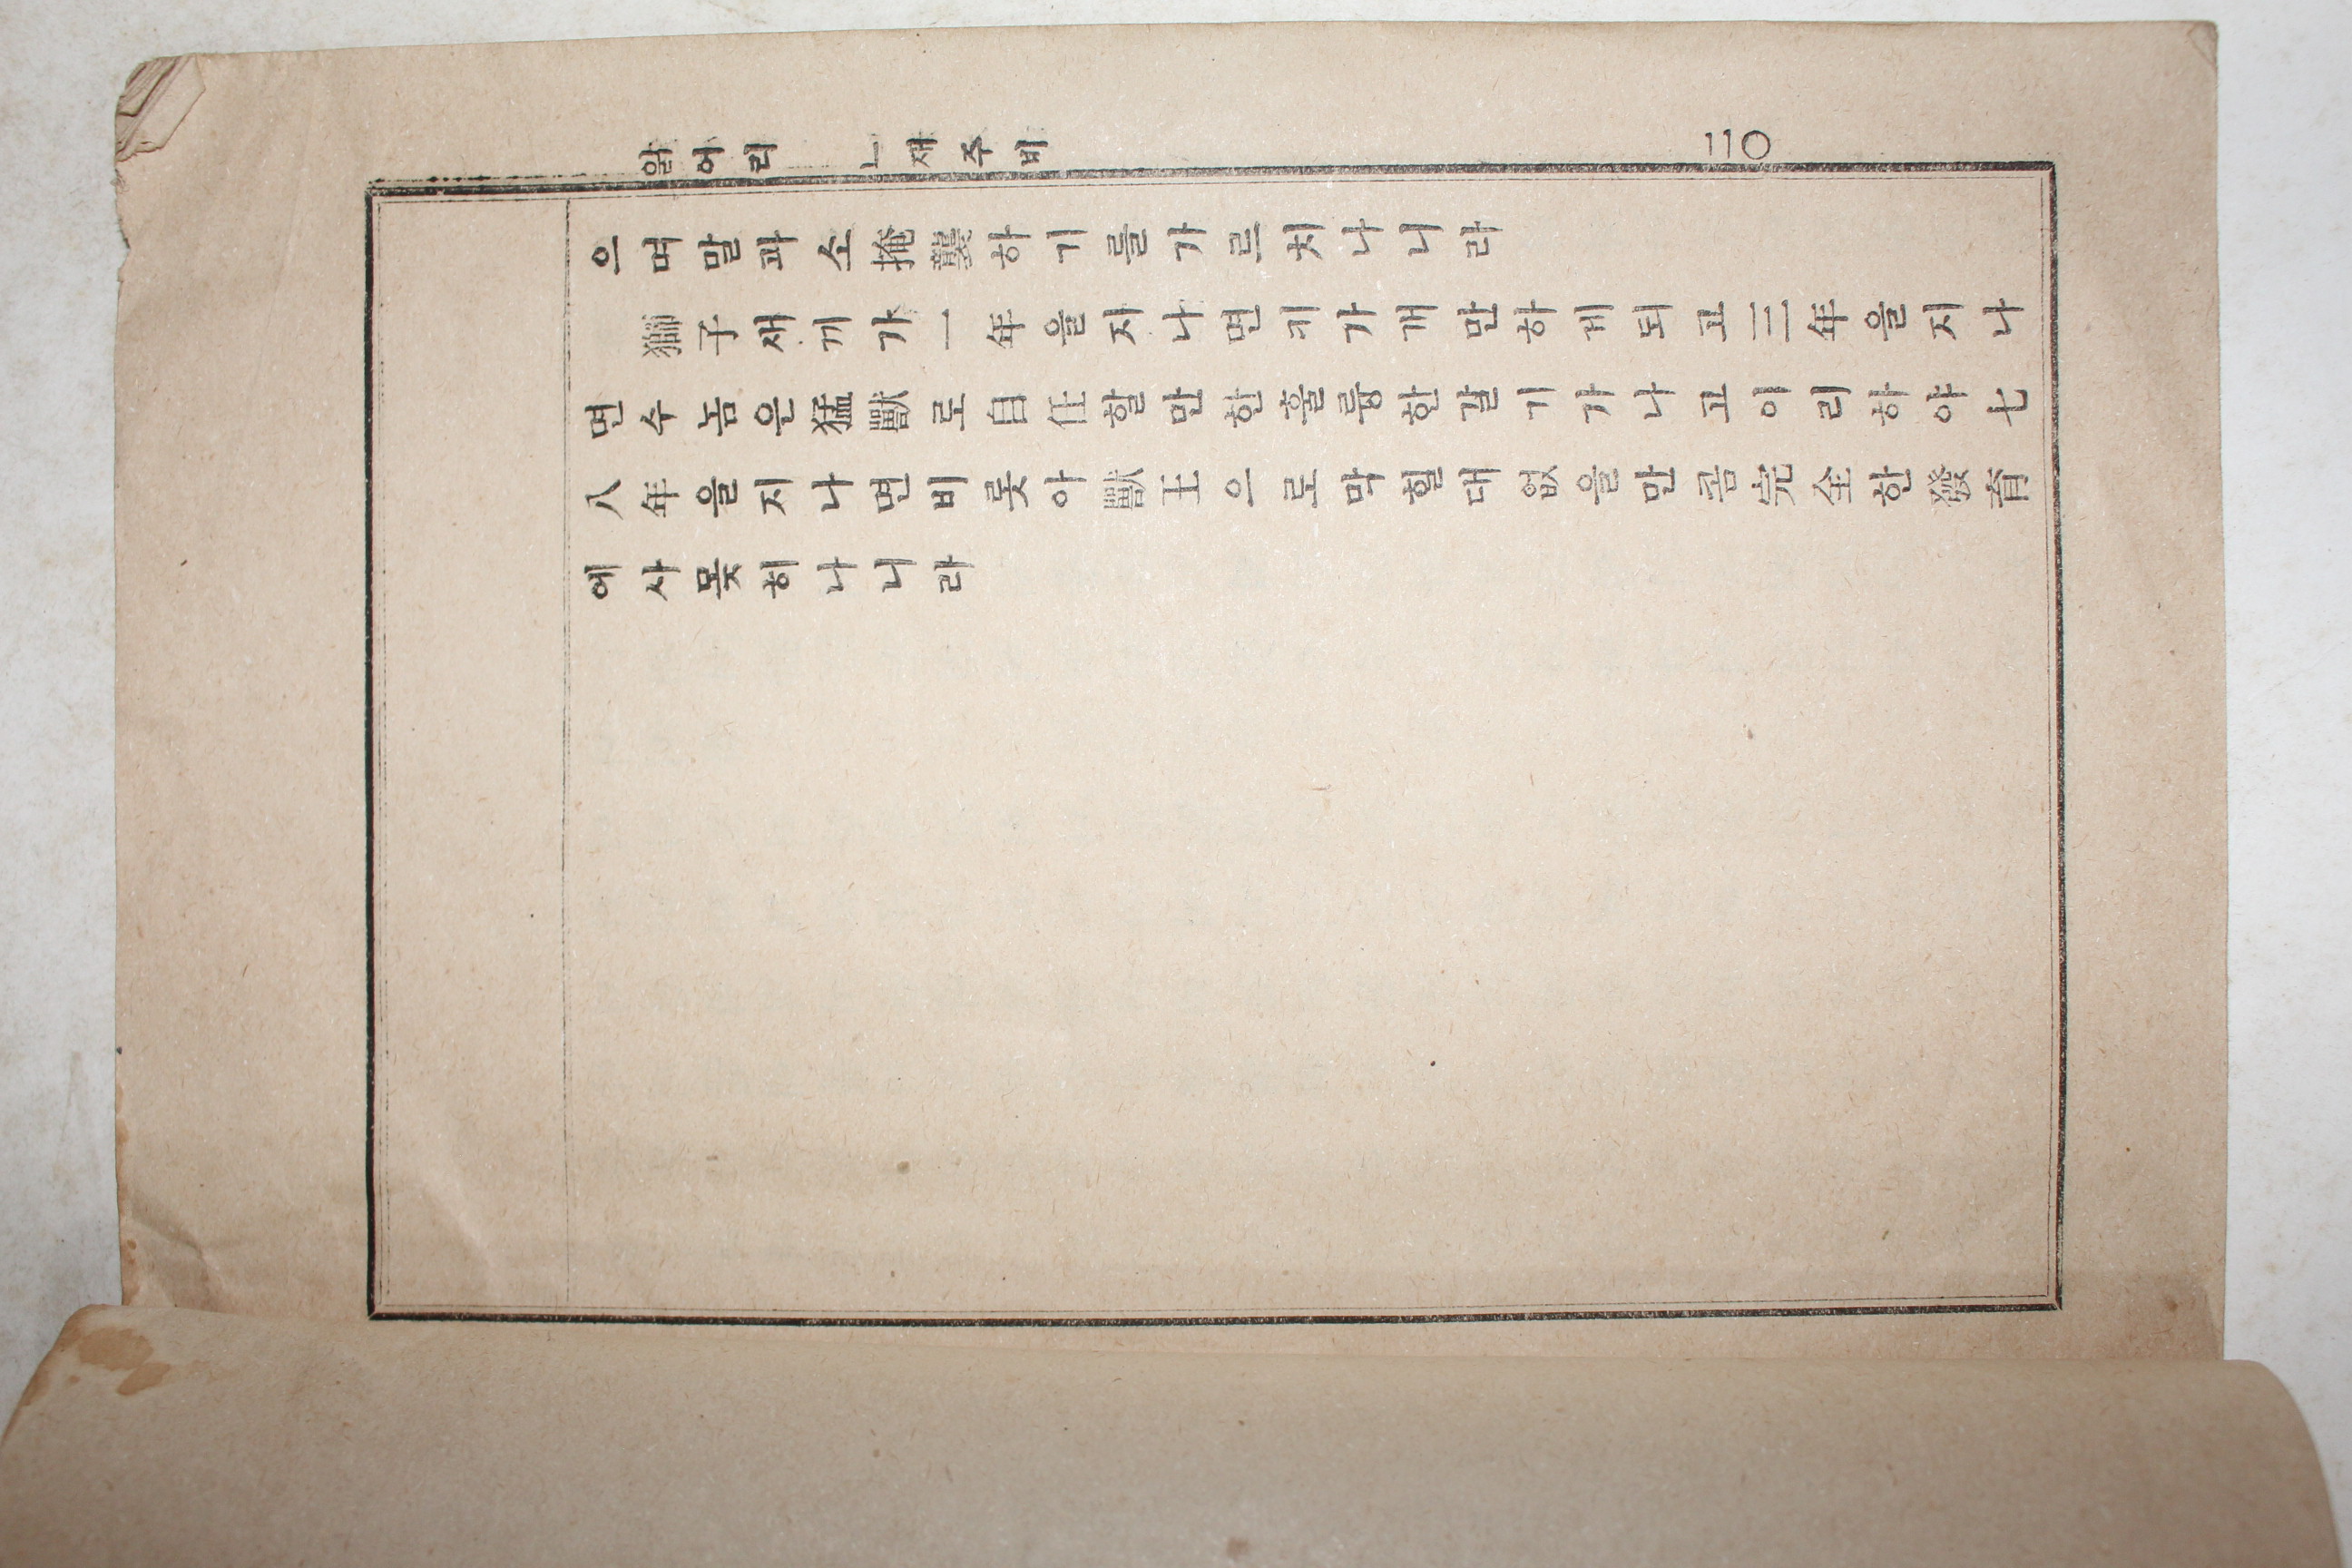 읽어리 ㄴ재주비
二〇
으며말과소掩襲하기를가르치나니라
獅子새끼가一年을지나면키가개만하게되고三年을지나
면수놈은猛獸로自任할만한훌륭한갈기가나고이리하야七
八年을지나면비롯아獸王으로막힐대없을만콤完全한發育
에사못히나니라